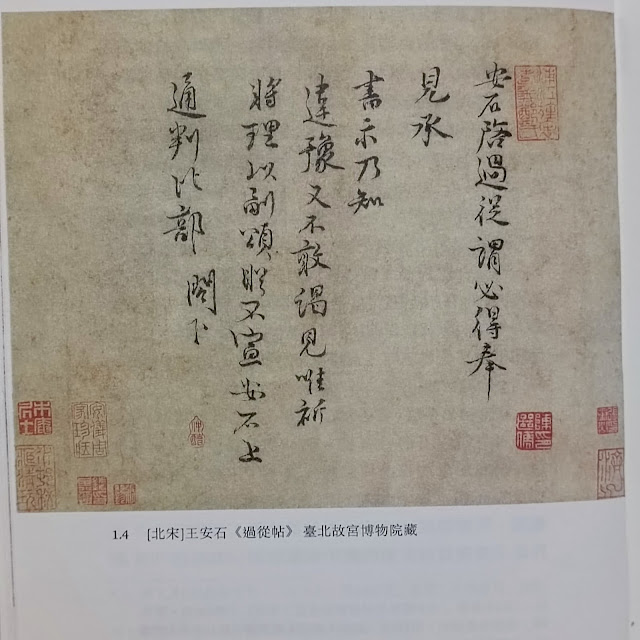 安石啓過從謂必得奉
見承
書示乃知
違豫又不敢謁見唯祈
將理以副頌眷不宣安石上
通判比部 閣下
1.4 [北宋]王安石《過從帖》 臺北故宮博物院藏